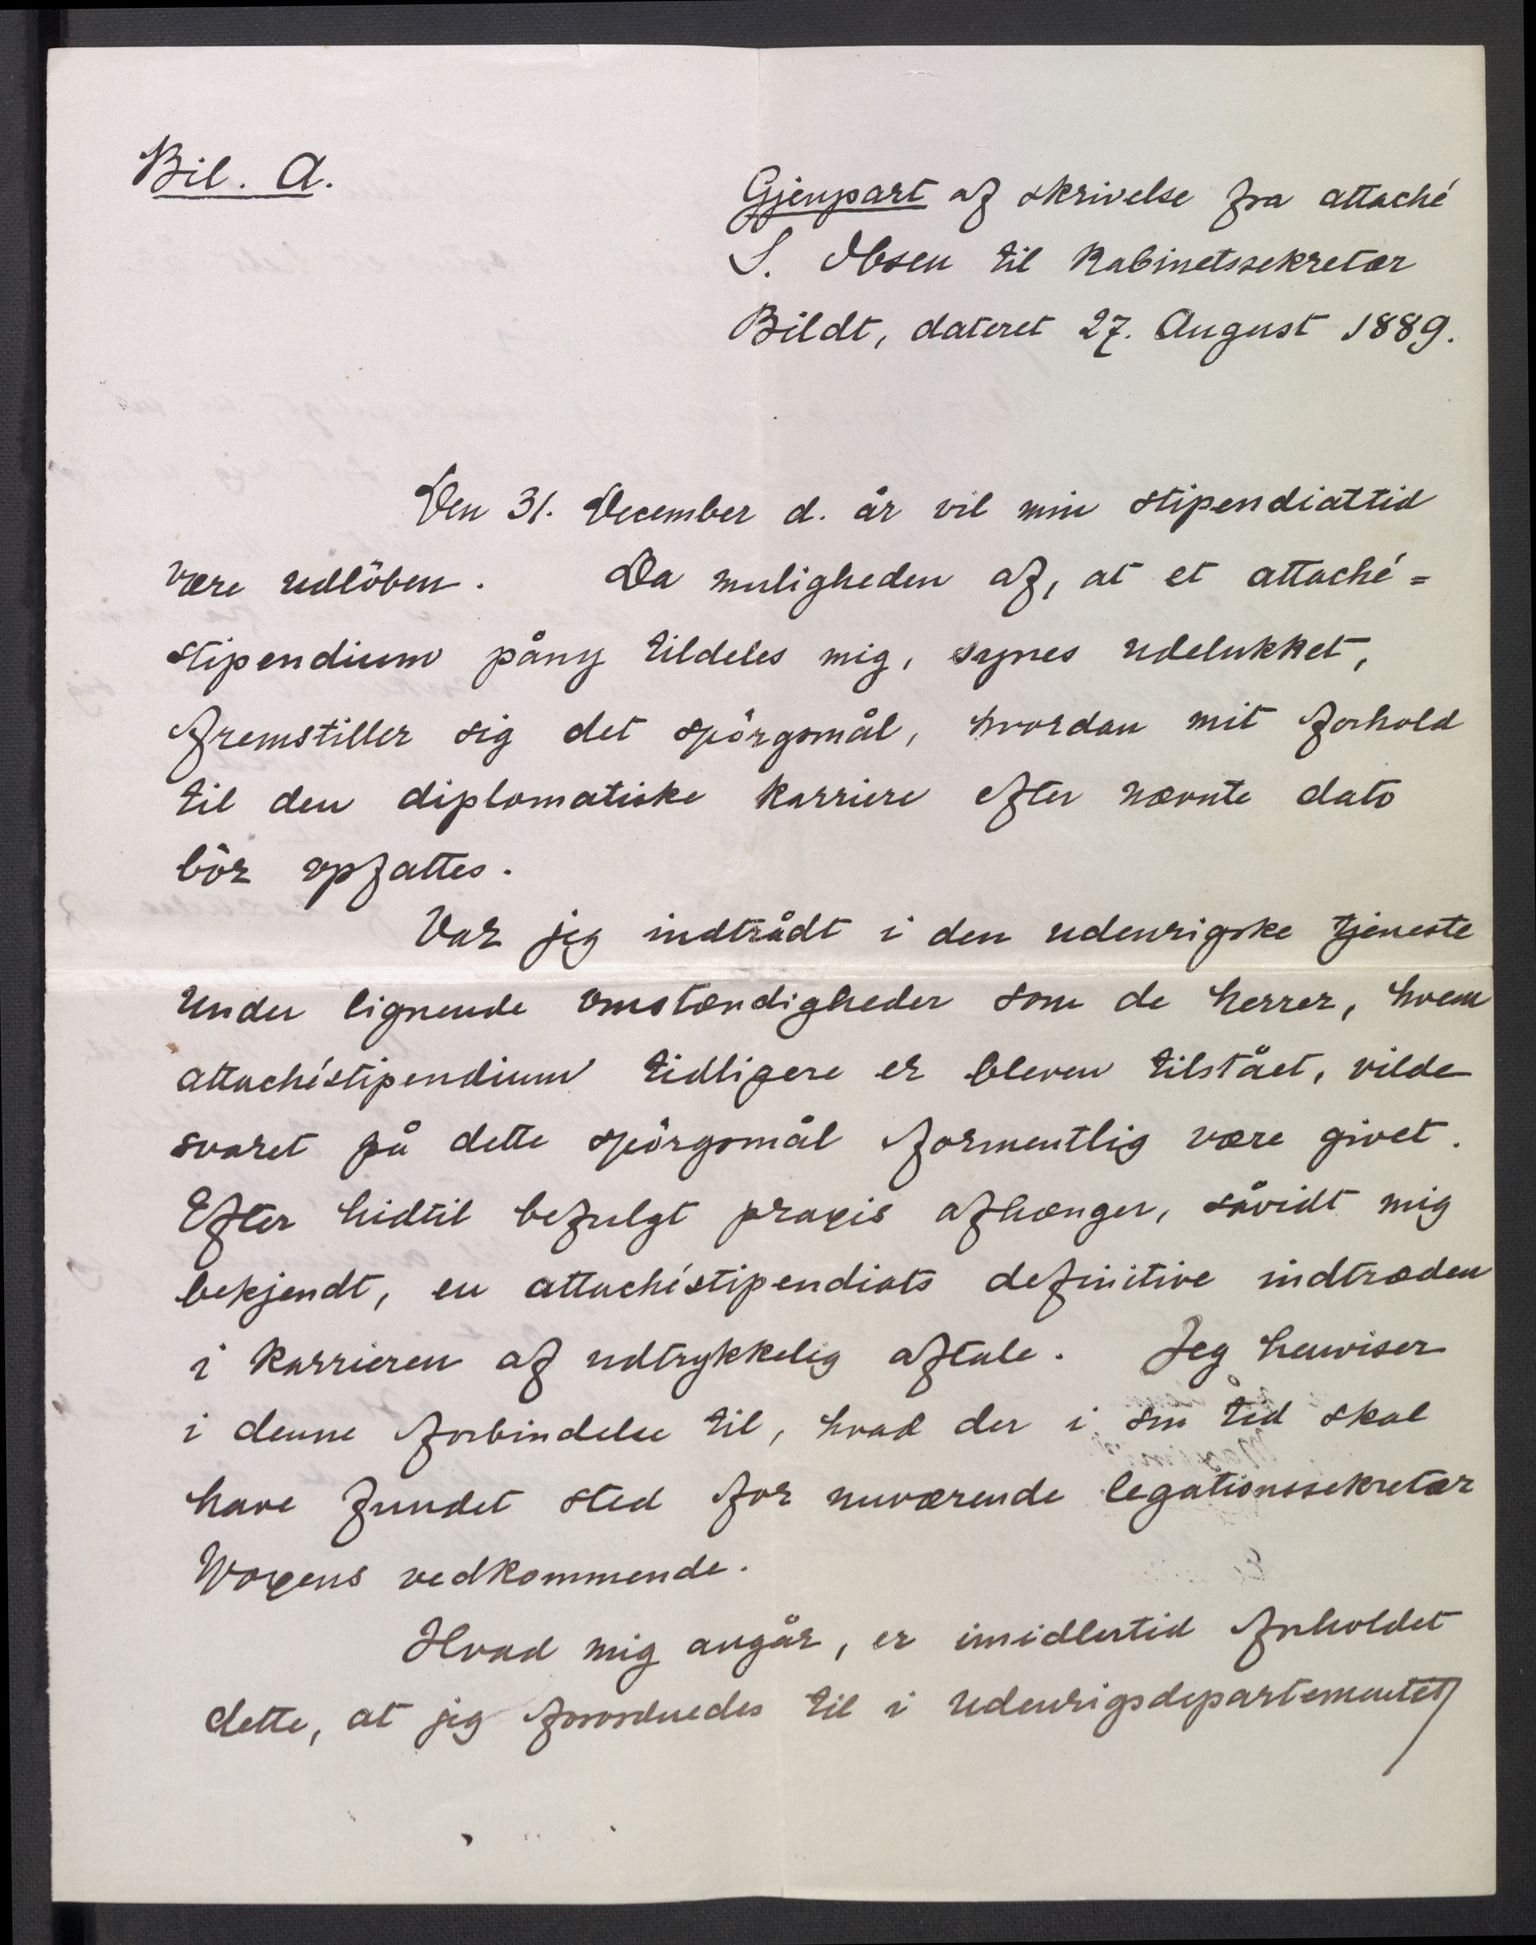 Bil. A.
Gjenpart af skrivelse fra attaché
S. Ibsen til Kabinetssekretær
Bildt, dateret 27. August 1889.
Den 31. December d. år vil min stipendiattid
være udlöben. Da muligheden af, at et attaché=
stipendium påny tildeles mig, synes udelukket,
fremstiller sig det spörgsmål, hvordan mit forhold
til den diplomatiske karriere efter nævnte dato
bör opfattes.
Var jeg indtrådt i den udenrigske tjeneste
under lignende omstændigheder som de herrer, hvem
attachéstipendium tidligere er bleven tilstået, vilde
svaret på dette spörgsmål formentlig være givet.
Efter hidtil befulgt praxis afhænger, såvidt mig
bekjendt, en attachéstipendiats definitive indtræden
i karrieren af udtrykkelig aftale. Jeg henviser
i denne forbindelse til, hvad der i sin tid skal
have fundet sted for nuværende legationssekretær
Woxens vedkommende.
Hvad mig angår, er imidlertid forholdet
dette, at jeg forordnedes til i udenrigsdepartementet